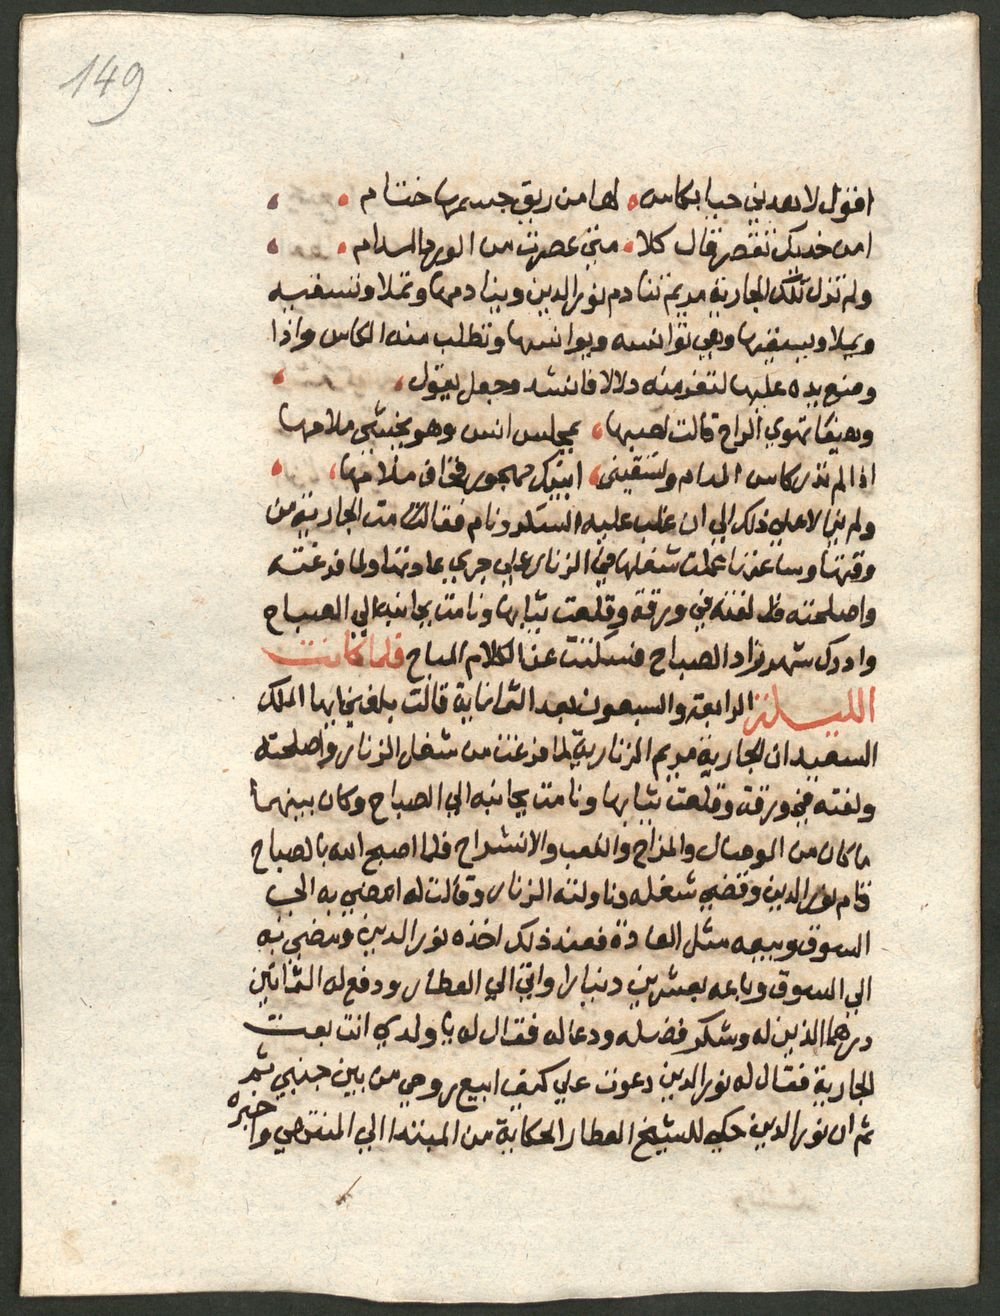 149
اقول لاهيف حيا بكاس لها من ريق جسمها ختام
امن خديك تعصر قال كلا متى عصرت من الورد المدام
ولم تزل تلك الجارية مريم تنادم نور الدين وينادمها وتملا وتسقيه
ويملا ويسقيها وهي توانسه ويوانسها وتطلب منه الكاس واذا
وضع يده عليها تنفر منه دلالا فانشد وجعل يقول
وهيفا تهوي الراح قالت لصبها بمجلس انس وهو يخشي ملامها
اذا لم تدر كاس المدام وتسقيني ابيتك مهجور فخاف ملامها
ولم يزالا علي ذلك الي ان غلب عليه السكر ونام فقامت الجارية من
وقتها وساعتها عملت شغلها في الزنار علي جري عادتها ولما فرغته
واصلحته لفته في ورقة وقلعت ثيابها ونامت بجانبه الي الصباح
وادرك شهرزاد الصباح فسكتت عن الكلام المباح فلما كانت
الليلة الرابعة والسبعون بعد الثمانماية قالت بلغني ايها الملك
السعيد ان الجارية مريم الزنارية لما فرغت من شغل الزنار واصلحته
ولفته في ورقة وقلعت ثيابها ونامت بجانبه الي الصباح وكان بينهما
ما كان من الوصال والمزاح واللعب والانشراح فلما اصبح الله بالصباح
قام نور الدين وقضي شغله وناولته الزنار وقالت له امضي به الي
السوق وبيعه مثل العادة فعند ذلك اخذه نور الدين ومضي به
الي السوق وباعه بعشرين دينارا واتي الي العطار ودفع له الثمانين
درهما الذين له وشكر فضله ودعا له فقال له يا ولدي انت بعت
الجارية فقال له نور الدين دعوت علي كيف ابيع روحي من بين جنبي ثم
ثم ان نور الدين حكي للشيخ العطار الحكاية من المبتدا الي المنتهي واخبره